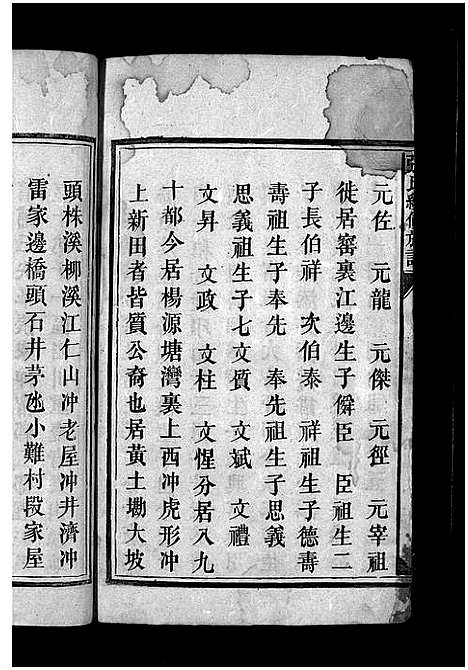 元佐　元龍　元傑　元徑　元宰祖
徙居窰裏江邊生子僻臣　臣祖生二
子長伯祥　次伯泰　祥祖生子德壽
壽祖生子奉先　奉先祖生子思義
思義祖生子七文質　文斌　文禮
文昇　文政　文柱　文惺分居八九
十都今居楊源塘灣裏上西冲虎形冲
上新田者皆質公裔也居黃土墈大坡
頭株溪柳溪江仁山冲老屋冲井濟冲
雷家邊橋頭石井茅氹小難村段家屋